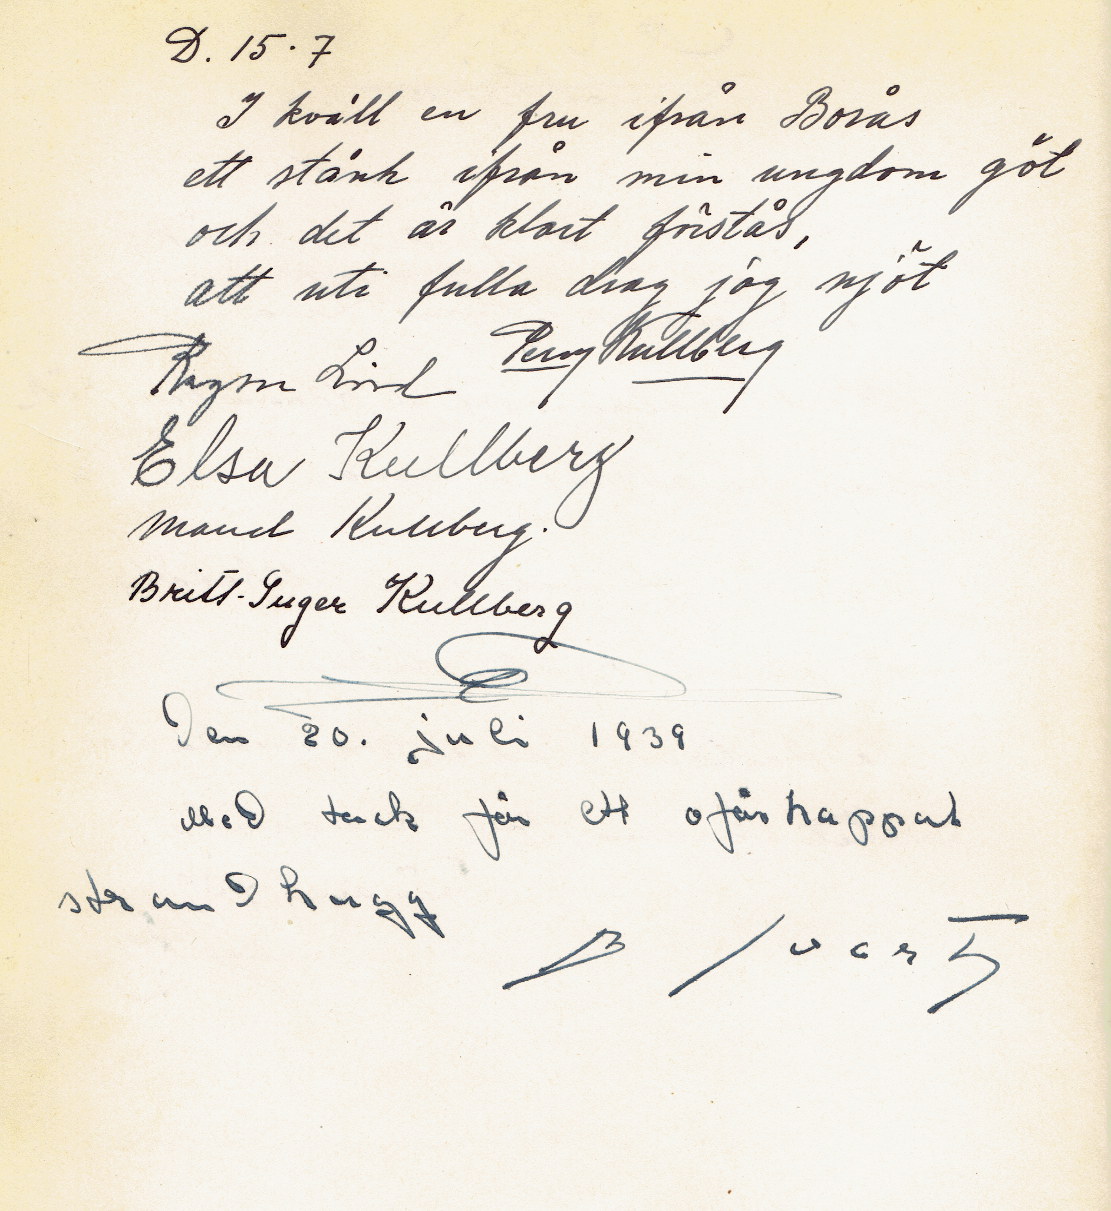 D. 15.7
I kväll en fru ifrån Borås
ett stänk ifrån min ungdom göt
och det är klart förstås,
att uti fulla drag jag njöt
Percy Kullberg
Lind
Elsa Kullberg
Maud Kullberg.
Britt-Inger Kullberg
Den 20. juli 1939
Med tack för ett oförhappat
strandhugg
B Svartz